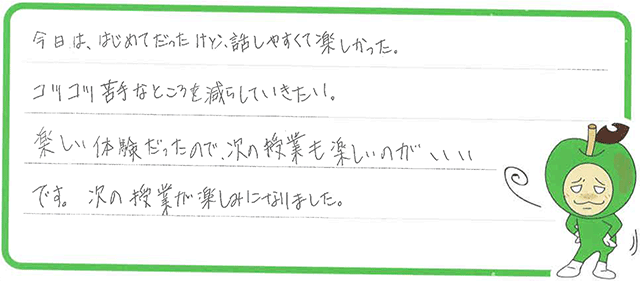 今日は、はじめてだったけど、話しやすくて楽しかった。
コツコツ苦手なところを減らしていきたい。
楽しい体験だったので、次の授業も楽しいのがいい
です。次の授業が楽しみになりました。